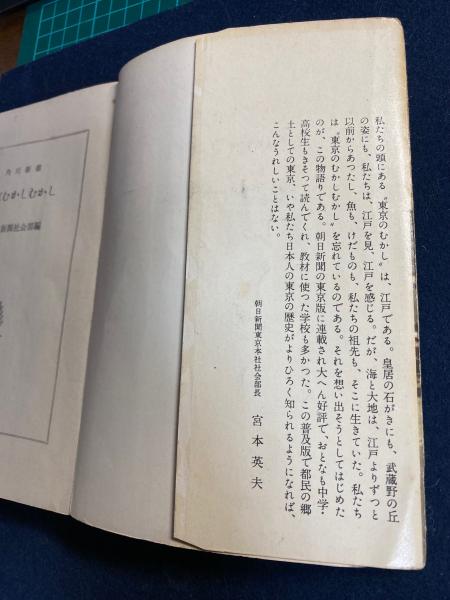 私たちの頭にある〝東京のむかし〟は、江戸である。皇居の石がきにも、武蔵野の丘
の姿にも、私たちは、江戸を見、江戸を感じる。だが、海と大地は、江戸よりずつと
以前からあつたし、魚も、けだものも、私たちの祖先も、そこに生きていた。私たち
は〝東京のむかしむかし〟を忘れているのである。それを想い出そうとしてはじめた
のが、この物語りである。朝日新聞の東京版に連載され大へん好評で、おとなも中学・
高校生もきそつて読んでくれ、教材に使つた学校も多かつた。この普及版で都民の郷
土としての東京、いや私たち日本人の東京の歴史がよりひろく知られるようになれば、
こんなうれしいことはない。
朝日新聞東京本社社会部長
宮本英夫
角川新書
むかしむかし
新聞社会部編